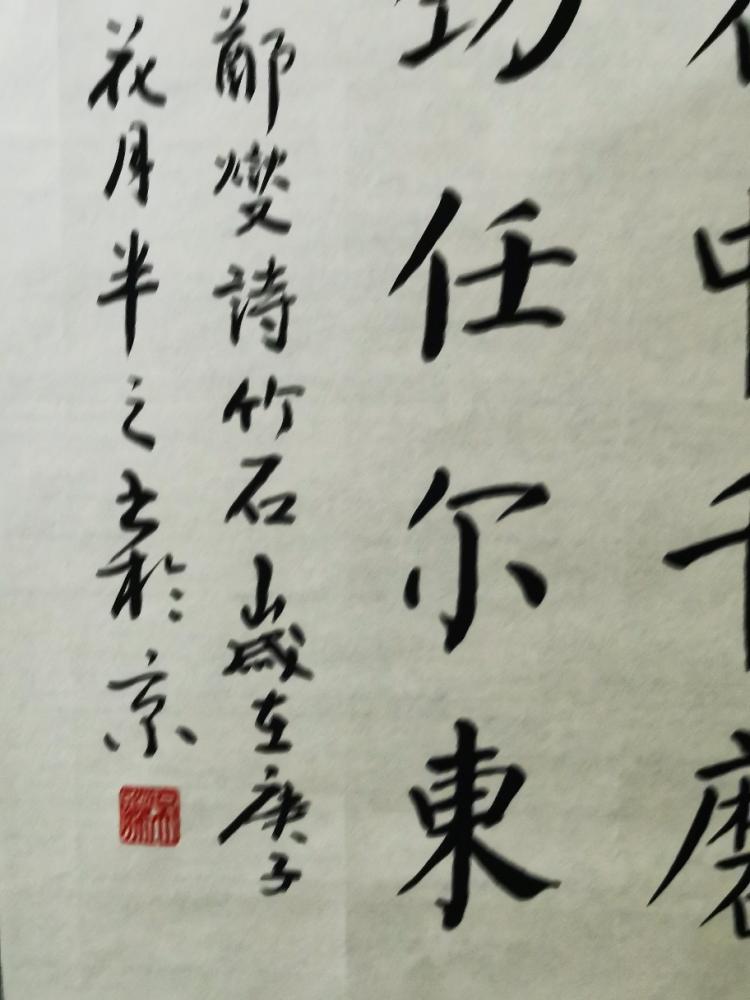 中千磨
任尔東
鄭燮詩竹石歲在庚子
花月半之書於京